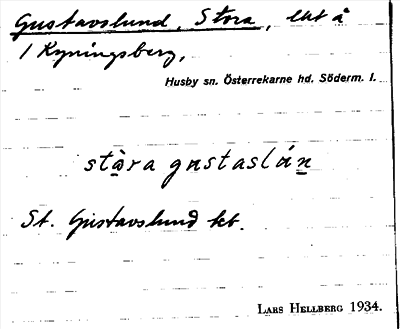 Gustavslund, Stora, lht å
1 Kyningsberg,
Husby sn. Österrekarne hd. Söderm. l.
stàra gustaslán
St. Gustavslund kt.
LARS HELLBERG 1934.